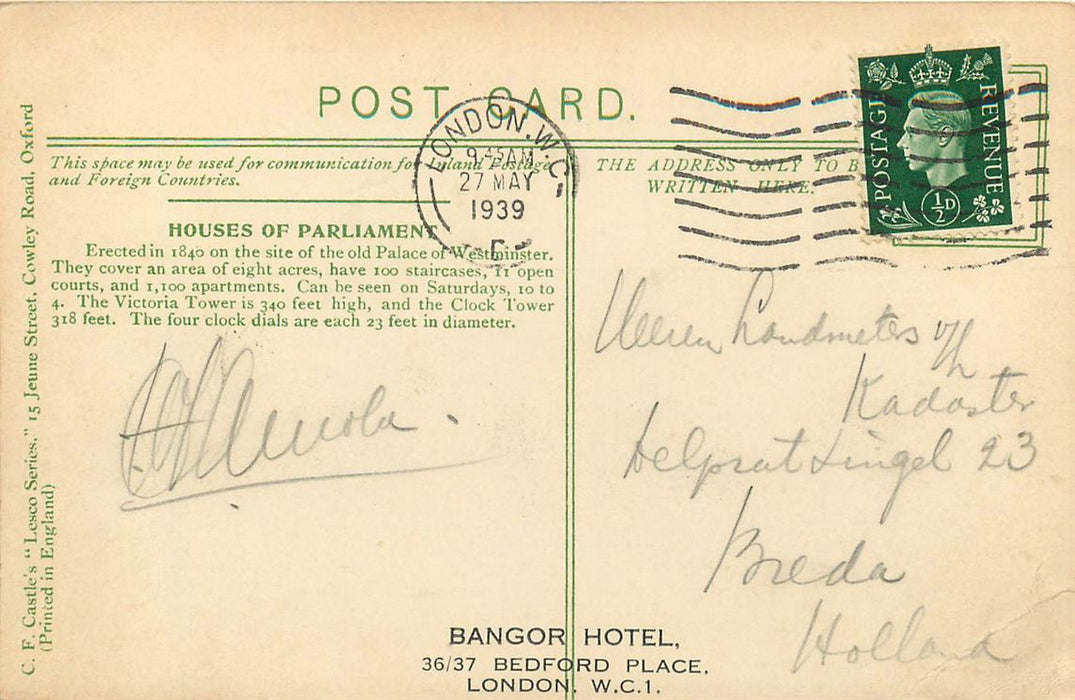 POST CARD.
This space may be used for communication for Inland Postage
and Foreign Countries.
HOUSES OF PARLIAMENT
Erected in 1840 on the site of the old Palace of Westminster.
They cover an area of eight acres, have 100 staircases, 11 open
courts, and 1,100 apartments. Can be seen on Saturdays, 10 to
4. The Victoria Tower is 340 feet high, and the Clock Tower
318 feet. The four clock dials are each 23 feet in diameter.
C. F. Castle's "Lesco Series," 15 Jeune Street, Cowley Road, Oxford
(Printed in England)
LONDON. W.C.1
9.45AM
27 MAY
1939
THE ADDRESS ONLY TO B
WRITTEN HERE.
POSTAGE
REVENUE
½D
Heeren Landmeters v/h
Kadaster
Singel 23
Breda
Holland
BANGOR HOTEL,
36/37 BEDFORD PLACE,
LONDON. W.C.1.